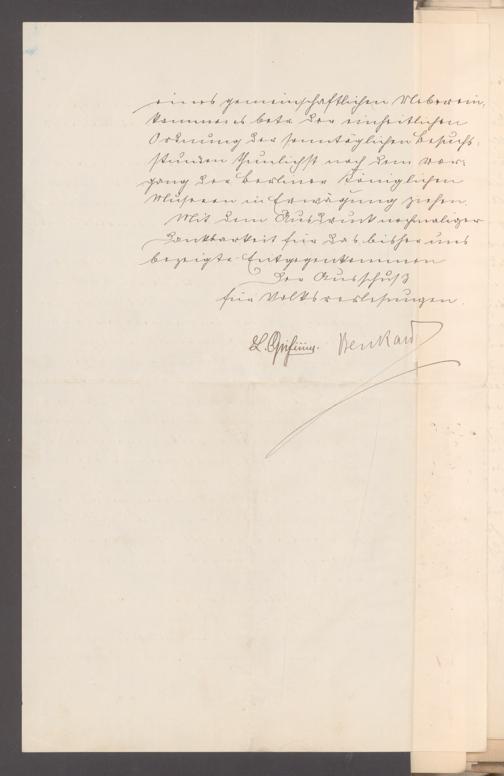 eines gemeinschaftlichen Ueberein-
kommens betr. der einheitlichen
Ordnung der sonntäglichen Besuchs-
stunden thunlichst nach dem Vor-
gang der Berliner Königlichen
Museen in Erwägung ziehen.
Mit dem Ausdruck nochmaliger
Dankbarkeit für das bisher uns
bezeigte Entgegenkommen
Der Ausschuß
für Volksvorlesungen.
Benkard